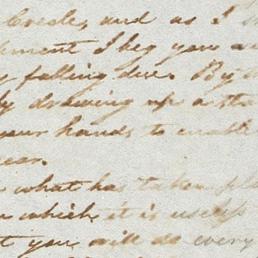 Creole, and as I
I beg you
falling due. By
drawing up a
your hands to enable
year.
what has taken
which it is useless
you will do every